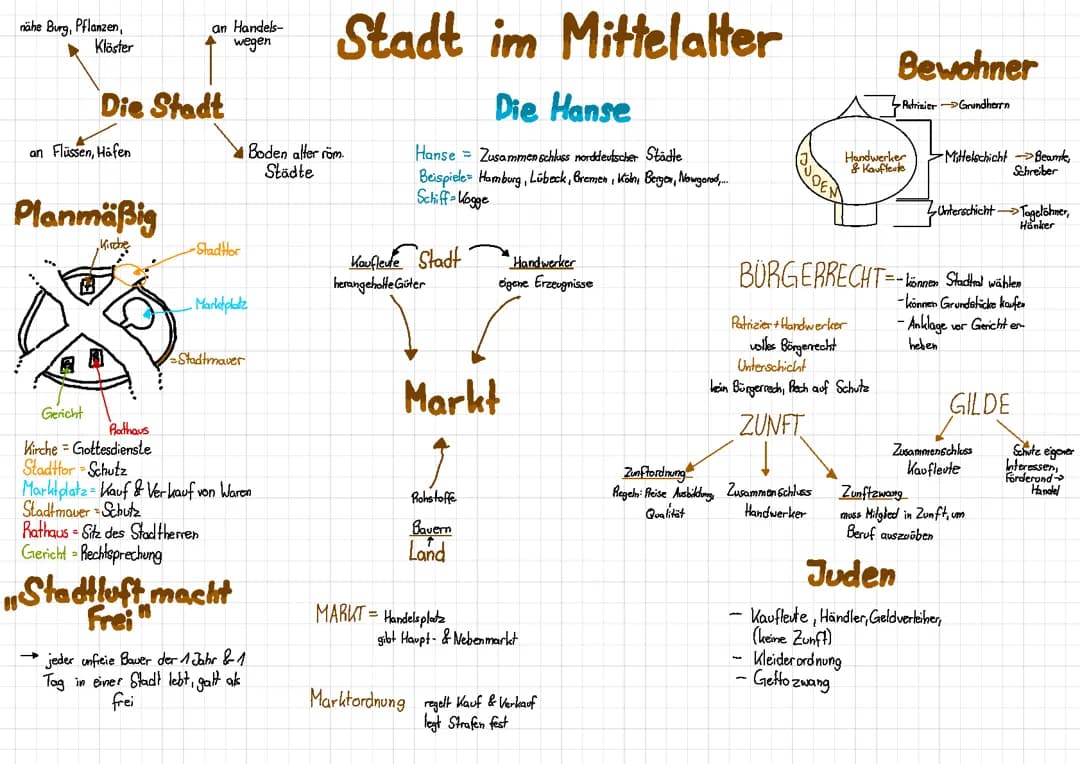 Stadt im Mittelalter
nähe Burg, Pflanzen,
Klöster
an Handels-
wegen
Die Stadt
an Flüssen, Häfen
Boden alter röm.
Städte
Die Hanse
Hanse = Zusammenschluss norddeutscher Städte
Beispiele= Hamburg, Lübeck, Bremen, Köln, Bergen, Nowgorod,...
Schiff= Kogge
Bewohner
Patrizier → Grundherrn
JUDEN
Handwerker
& Kaufleute
Mittelschicht → Beamte,
Schreiber
Unterschicht → Tagelöhner,
Hänker
Planmäßig
Kirche
Stadttor
Marktplatz
=Stadtmauer
Gericht
Rathaus
Kirche = Gottesdienste
Stadttor = Schutz
Marktplatz = Kauf & Verkauf von Waren
Stadtmauer = Schutz
Rathaus = Sitz des Stadtherren
Gericht = Rechtsprechung
Kaufleute
Stadt
Handwerker
herangeholte Güter
eigene Erzeugnisse
Markt
Rohstoffe
Bauern
Land
BÜRGERRECHT= - können Stadtrat wählen
- können Grundstücke kaufen
- Anklage vor Gericht er-
heben
Patrizier + Handwerker
volles Bürgerrecht
Unterschicht
kein Bürgerrech, Rech auf Schutz
ZUNFT
Zunftordnung
Regeln: Preise Ausbildung,
Qualität
Zusammenschluss
Handwerker
Zunftzwang
muss Mitglied in Zunft, um
Beruf auszuüben
GILDE
Zusammenschluss
Kaufleute
Schutz eigener
Interessen,
Förderund →
Handel
„Stadtluft macht
frei"
→ jeder unfreie Bauer der 1 Jahr & 1
Tag in einer Stadt lebt, galt als
frei
MARKT = Handelsplatz
gibt Haupt- & Nebenmarkt
Marktordnung regelt Kauf & Verkauf
legt Strafen fest
Juden
- Kaufleute, Händler, Geldverleiher,
(keine Zunft)
- Kleiderordnung
- Gettozwang